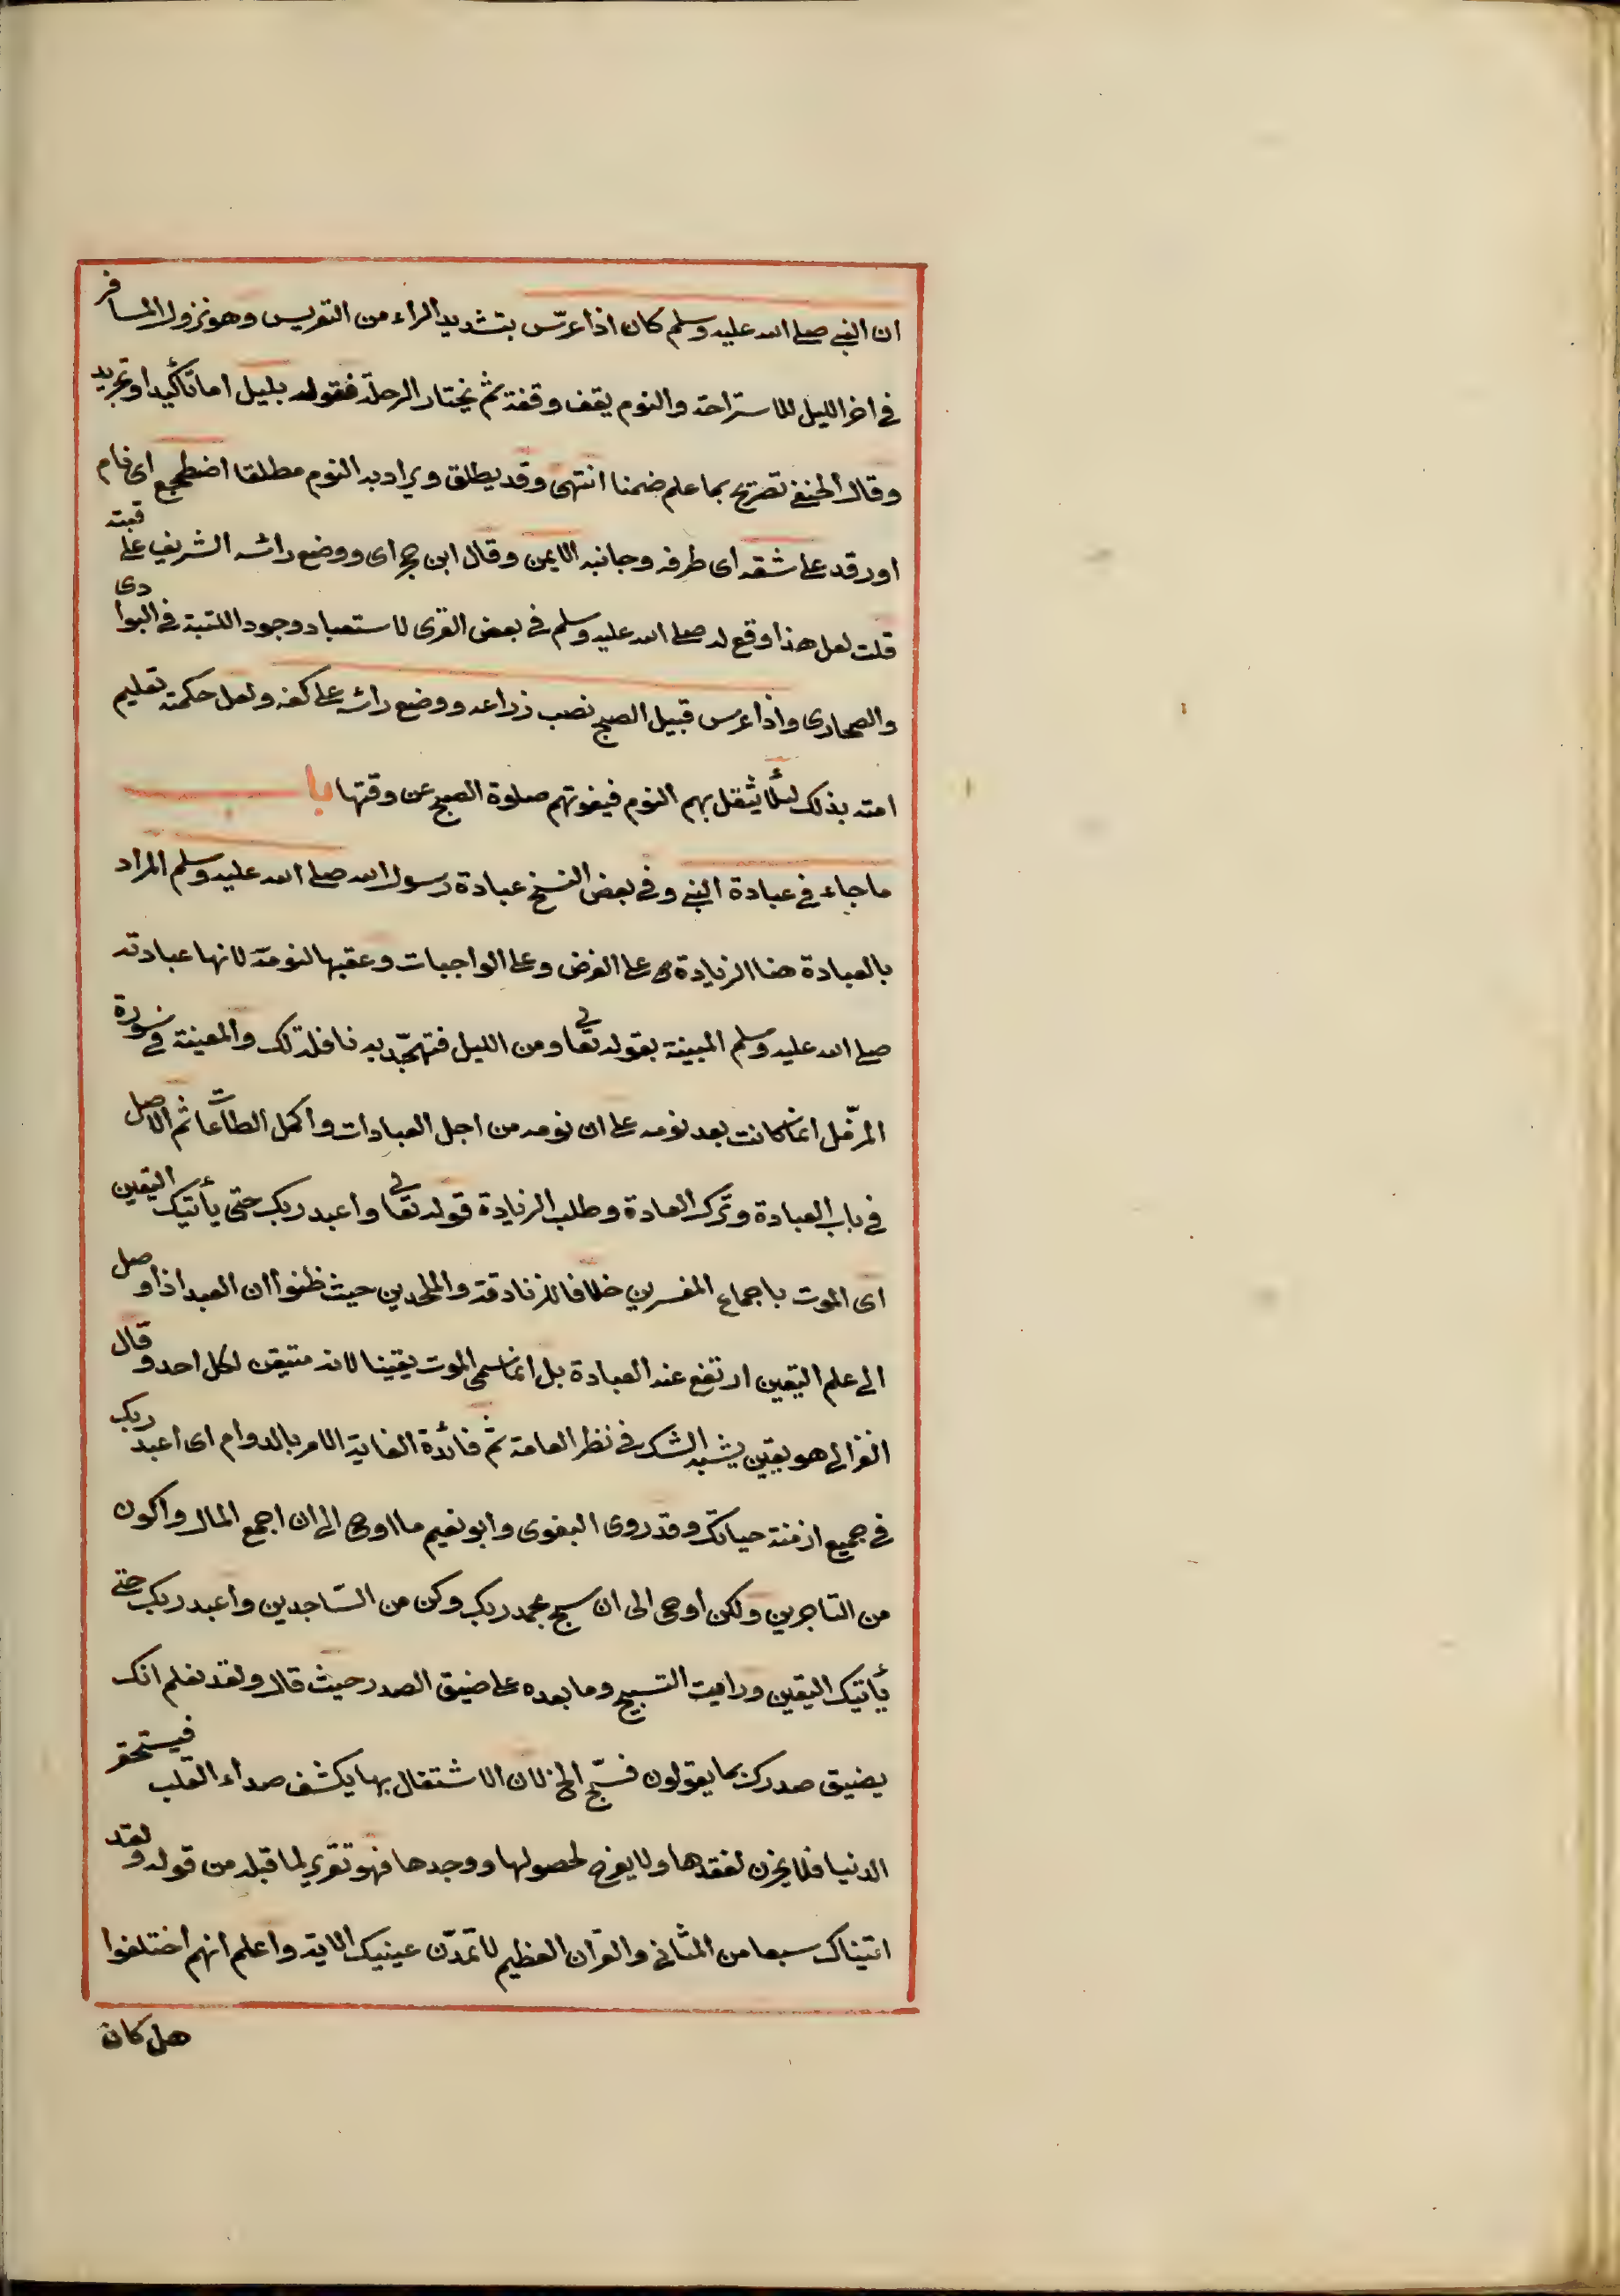 ان النبي صلى الله عليه وسلم كان اذا عرّس بتشديد الراء من التعريس وهو نزول المسافر
في اخر الليل للاستراحة والنوم يقف وقفة ثم يختار الرحلة فقوله بليل اما تأكيد او تجريد
وقال الحنفي تصريح بما علم ضمنا انتهى وقد يطلق ويراد به النوم مطلقا اضطجع اى نام
او رقد على شقه اى طرفه وجانبه الايمن وقال ابن حجر اى ووضع رائسه الشريف على
قلت لعل هذا وقع له صلى الله عليه وسلم في بعض القرى لاستبعاد وجود اللبنة في البوادى
والصحارى واذا عرس قبيل الصبح نصب ذراعه ووضع رائسه على كفه ولعل حكمته تعليم
امته بذلك لئلا يثقل بهم النوم فيفوتهم صلوة الصبح عن وقتها با
ما جاء في عبادة النبي وفي بعض النسخ عبادة رسول الله صلى الله عليه وسلم المراد
بالعبادة هنا الزيادة على الفرض وعلى الواجبات وعقبها لنومه لانها عبادته
صلى الله عليه وسلم المبينة بقوله تعالى ومن الليل فتهجّد به نافلة لك والمعينة في سورة
المزّمل انما كانت بعد نومه على ان نومه من اجل العبادات واكمل الطاعات ثم الاصل
في باب العبادة وترك العادة وطلب الزيادة قوله تعالى واعبد ربك حتى يأتيك اليقين
اى الموت باجماع المفسرين خلافا للزنادقة والملحدين حيث ظنوا ان العبد اذا وصل
الى علم اليقين ارتفع عنه العبادة بل انما سمى الموت يقينا لانه متيقن لكل احد وقال
الغزالى هو يقين يشبه الشك في نظر العامة ثم فائدة الغاية الامر بالدوام اى اعبد ربك
في جميع ازمنة حياتك وقد روى البغوى وابو نعيم ما اوحى الى ان اجمع المال واكون
من التاجرين ولكن اوحى الى ان سبح بحمد ربك وكن من السّاجدين واعبد ربك حتى
يأتيك اليقين ورايت التسبيح وما بعده على ضيق الصدر حيث قال ولقد نعلم انك
يضيق صدرك بما يقولون فسبّح الخ لان الاشتغال بها يكشف صداء القلب فيستحقر
الدنيا فلا يحزن لفقدها ولا يفرح لحصولها ووجدها فهو تقرير لما قبله من قوله ولقد
اتيناك سبعا من المثاني والقران العظيم لا تمدّن عينيك الاية واعلم انهم اختلفوا
هل كان